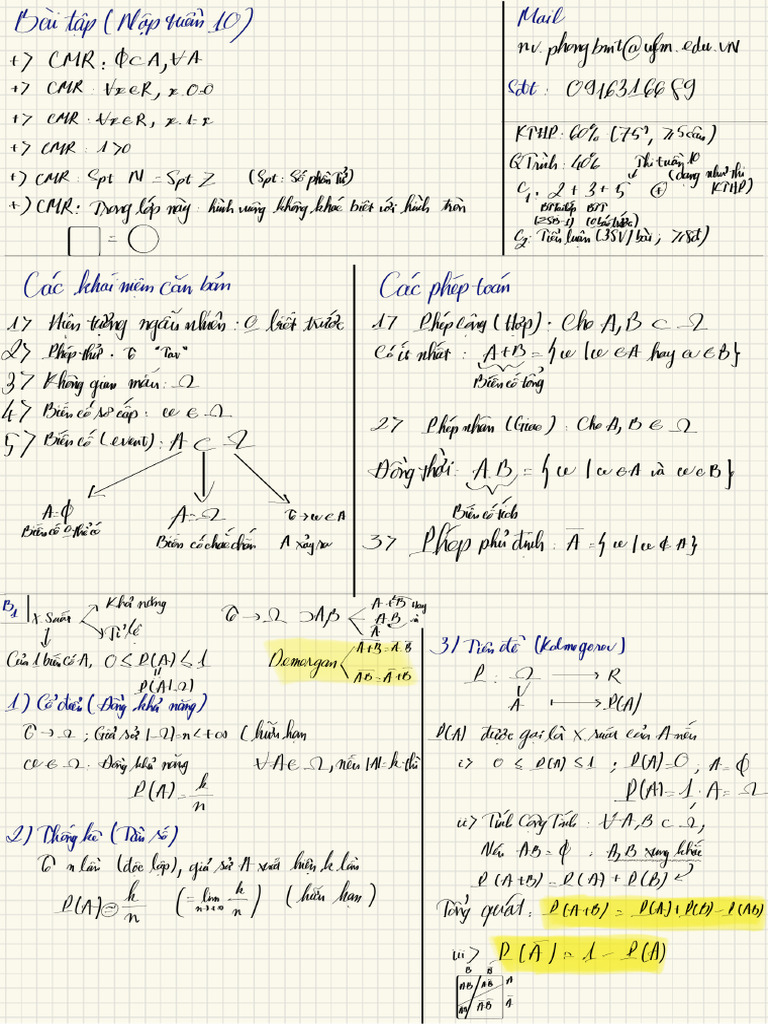 Bài tập (Nộp tuần 10)
+> CMR: ∅⊂A, ∀A
+> CMR: ∀x∈R, x.0=0
+> CMR: ∀x∈R, x.1=x
+> CMR: 1>0
+> CMR: Spt N = Spt Z (Spt: Số phần tử)
+> CMR: Trong lớp này: hình vuông không khác biệt với hình tròn
=
Mail
nv.phongbmt@ufm.edu.VN
Sđt: 0916316689
KTHP: 60% (75', ≥5 câu)
QTrình: 40% Thi tuần 10
C1: 2 + 3 + 5 ⊕ (dạng như thi KTHP)
C2: Tiểu luận (3SV/bài;
Các khái niệm căn bản
1> Hiện tượng ngẫu nhiên: 0 biết trước
2> Phép thử: τ "Tau"
3> Không gian mẫu: Ω
4> Biến cố sơ cấp: ω ∈ Ω
5> Biến cố (event): A ⊂ Ω
A=∅ A=Ω τ→ω∈A
Biến cố 0 thể có Biến cố chắc chắn A xảy ra
Các phép toán
1> Phép cộng (Hợp): Cho A, B ⊂ Ω
Có ít nhất: A+B = {ω | ω∈A hay ω∈B}
Biến cố tổng
2> Phép nhân (Giao): Cho A, B ∈ Ω
Đồng thời: A.B = {ω | ω∈A và ω∈B}
Biến cố tích
3> Phép phủ định: Ā = {ω | ω∉A}
B1 X.Suất Khả năng
Tỉ lệ
τ → Ω ⊃ A,B A+B hay
A.B và
Ā
Của 1 biến cố A, 0 ≤ P(A) ≤ 1
P(A|Ω)
Demorgan A̅+̅B̅ = A̅.B̅
A̅B̅ = A̅+B̅
1) Cổ điển (Đồng khả năng)
τ → Ω; Giả sử |Ω|=n<+∞ (hữu hạn
ω∈Ω: Đồng khả năng ∀A∈Ω, nếu |A|=k thì
P(A) = k/n
2) Thống kê (Tần số)
τ n lần (độc lập), giả sử A xuất hiện k lần
P(A) = k/n (= lim n→+∞ k/n) (hữu hạn)
3/ Tiên đề (Kolmogorov)
P: Ω → R
A ↦ P(A)
P(A) được gọi là X.suất của A nếu
i> 0 ≤ P(A) ≤ 1; P(A)=0, A=∅
P(A)=1, A=Ω
ii> Tính Cộng Tính: ∀A,B⊂Ω,
Nếu AB=∅: A,B xung khắc
P(A+B) = P(A) + P(B)
Tổng quát: P(A+B) = P(A)+P(B)-P(AB)
iii> P(Ā) = 1 - P(A)
B B̅
AB AB̅ A
A̅B̅ A̅